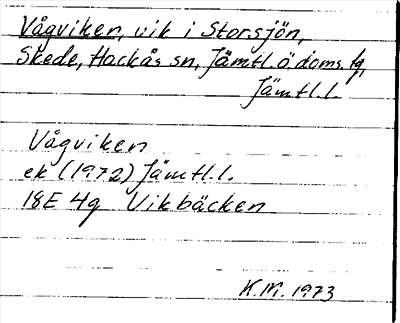 Vågviken, vik i Storsjön,
Skede, Hackås sn, Jämtl. ö doms. tg,
Jämtl. l.
Vågviken
ek (1972) Jämtl. l.
18E 4g Vikbäcken
K.M. 1973